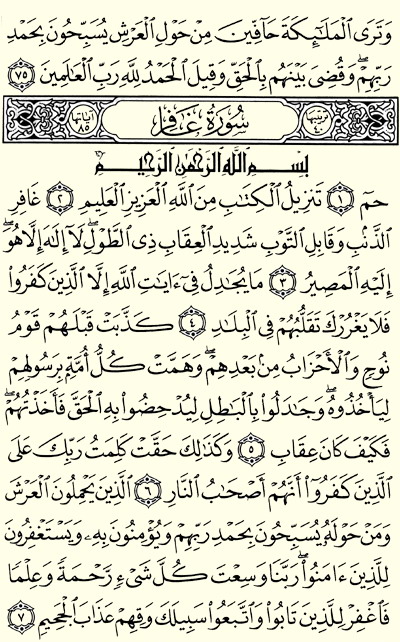 وَتَرَى ٱلْمَلَـٰٓئِكَةَ حَآفِّينَ مِنْ حَوْلِ ٱلْعَرْشِ يُسَبِّحُونَ بِحَمْدِ
رَبِّهِمْ ۖ وَقُضِىَ بَيْنَهُم بِٱلْحَقِّ وَقِيلَ ٱلْحَمْدُ لِلَّهِ رَبِّ ٱلْعَـٰلَمِينَ ٧٥
ترتيبها ٤٠ سُورَةُ غَافِرٍ آياتها ٨٥
بِسْمِ ٱللَّهِ ٱلرَّحْمَـٰنِ ٱلرَّحِيمِ
حمٓ ١ تَنزِيلُ ٱلْكِتَـٰبِ مِنَ ٱللَّهِ ٱلْعَزِيزِ ٱلْعَلِيمِ ٢ غَافِرِ
ٱلذَّنۢبِ وَقَابِلِ ٱلتَّوْبِ شَدِيدِ ٱلْعِقَابِ ذِى ٱلطَّوْلِ ۖ لَآ إِلَـٰهَ إِلَّا هُوَ ۖ
إِلَيْهِ ٱلْمَصِيرُ ٣ مَا يُجَـٰدِلُ فِىٓ ءَايَـٰتِ ٱللَّهِ إِلَّا ٱلَّذِينَ كَفَرُوا۟
فَلَا يَغْرُرْكَ تَقَلُّبُهُمْ فِى ٱلْبِلَـٰدِ ٤ كَذَّبَتْ قَبْلَهُمْ قَوْمُ
نُوحٍ وَٱلْأَحْزَابُ مِنۢ بَعْدِهِمْ ۖ وَهَمَّتْ كُلُّ أُمَّةٍۭ بِرَسُولِهِمْ
لِيَأْخُذُوهُ ۖ وَجَـٰدَلُوا۟ بِٱلْبَـٰطِلِ لِيُدْحِضُوا۟ بِهِ ٱلْحَقَّ فَأَخَذْتُهُمْ ۖ
فَكَيْفَ كَانَ عِقَابِ ٥ وَكَذَٰلِكَ حَقَّتْ كَلِمَتُ رَبِّكَ عَلَى
ٱلَّذِينَ كَفَرُوٓا۟ أَنَّهُمْ أَصْحَـٰبُ ٱلنَّارِ ٦ ٱلَّذِينَ يَحْمِلُونَ ٱلْعَرْشَ
وَمَنْ حَوْلَهُۥ يُسَبِّحُونَ بِحَمْدِ رَبِّهِمْ وَيُؤْمِنُونَ بِهِۦ وَيَسْتَغْفِرُونَ
لِلَّذِينَ ءَامَنُوا۟ رَبَّنَا وَسِعْتَ كُلَّ شَىْءٍ رَّحْمَةً وَعِلْمًا
فَٱغْفِرْ لِلَّذِينَ تَابُوا۟ وَٱتَّبَعُوا۟ سَبِيلَكَ وَقِهِمْ عَذَابَ ٱلْجَحِيمِ ٧